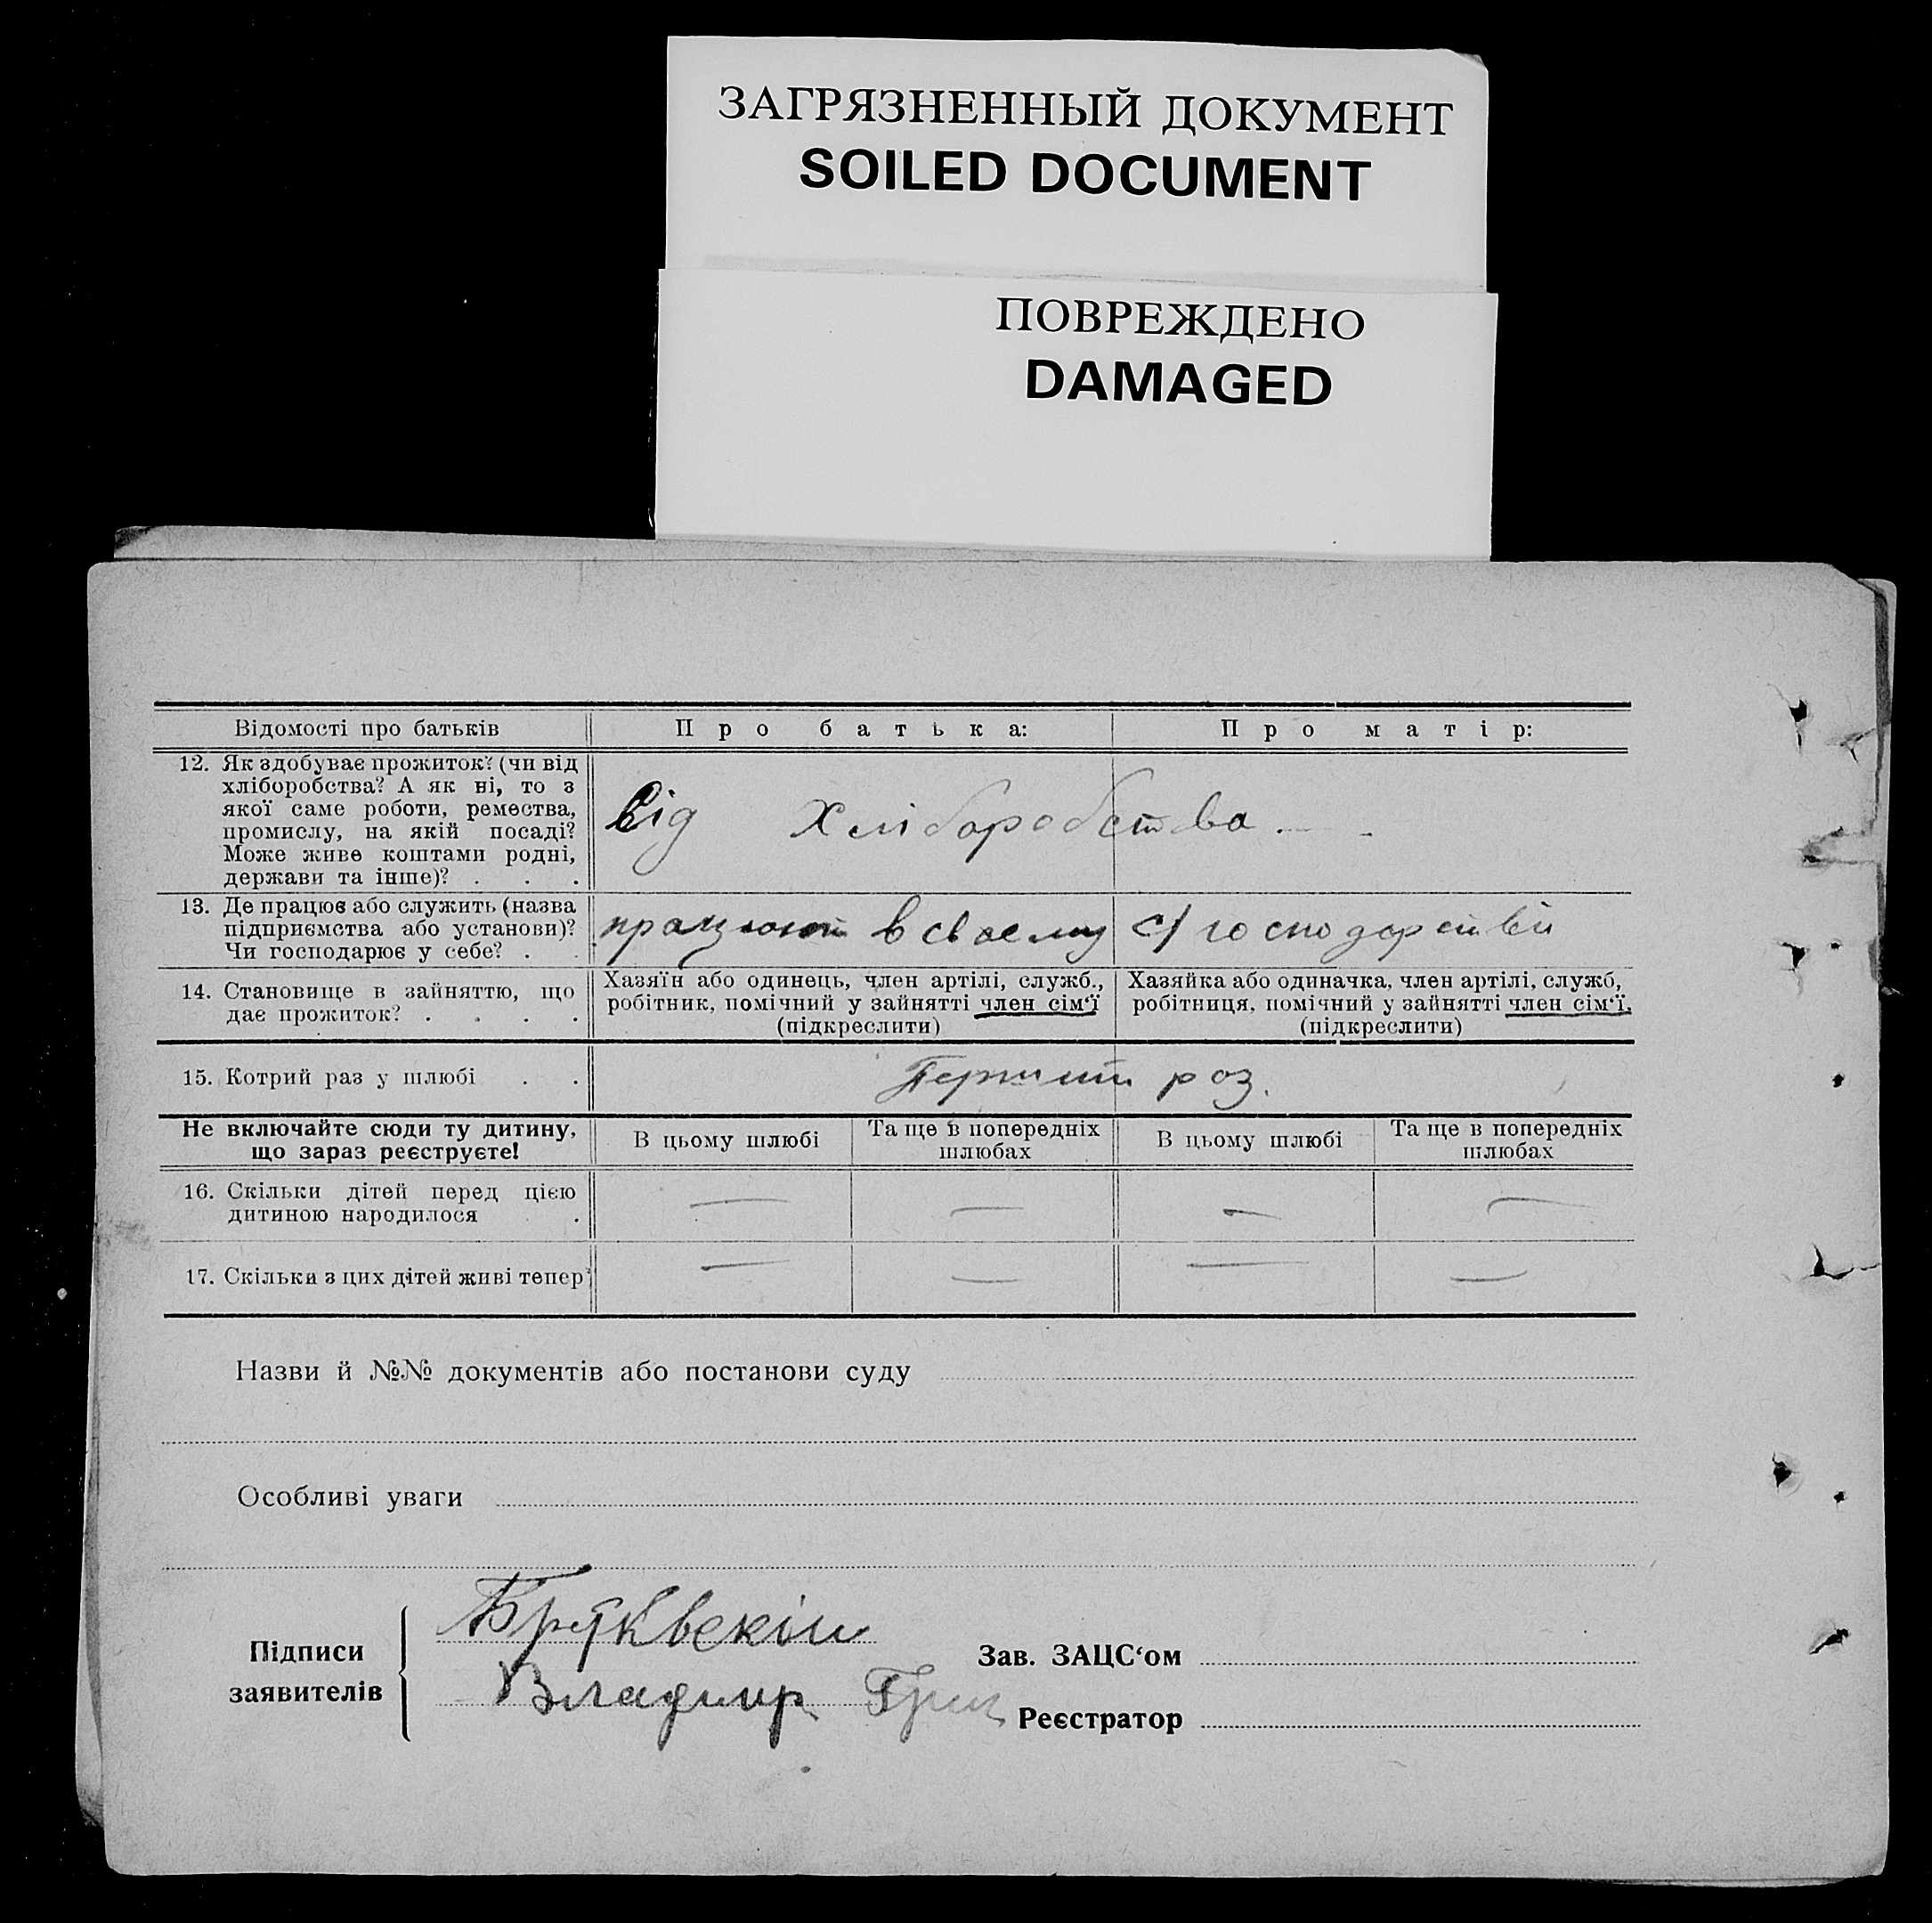 ЗАГРЯЗНЕННЫЙ ДОКУМЕНТ
SOILED DOCUMENT
ПОВРЕЖДЕНО
DAMAGED
Відомості про батьків
Про батька:
Про матір:
12. Як здобуває прожиток? (чи від
хліборобства? А як ні, то з
якої саме роботи, ремества,
промислу, на якій посаді?
Може живе коштами родні,
держави та інше)? . . .
від хліборобства.
13. Де працює або служить (назва
підприємства або установи)?
Чи господарює у себе? . .
працюют в своєму с/господарстві
14. Становище в зайняттю, що
дає прожиток? . . . .
Хазяїн або одинець, член артілі, служб.,
робітник, помічний у зайнятті член сім'ї
(підкреслити)
Хазяйка або одиначка, член артілі, служб,
робітниця, помічний у зайнятті член сім'ї.
(підкреслити)
15. Котрий раз у шлюбі . .
Перший раз.
Не включайте сюди ту дитину,
що зараз реєструєте!
В цьому шлюбі
Та ще в попередніх
шлюбах
В цьому шлюбі
Та ще в попередніх
шлюбах
16. Скільки дітей перед цією
дитиною народилося .
— — — —
17. Скільки з цих дітей живі тепер?
— — — —
Назви й №№ документів або постанови суду
Особливі уваги
Підписи
заявителів
Владимир Гриц
Зав. ЗАЦС'ом
Реєстратор